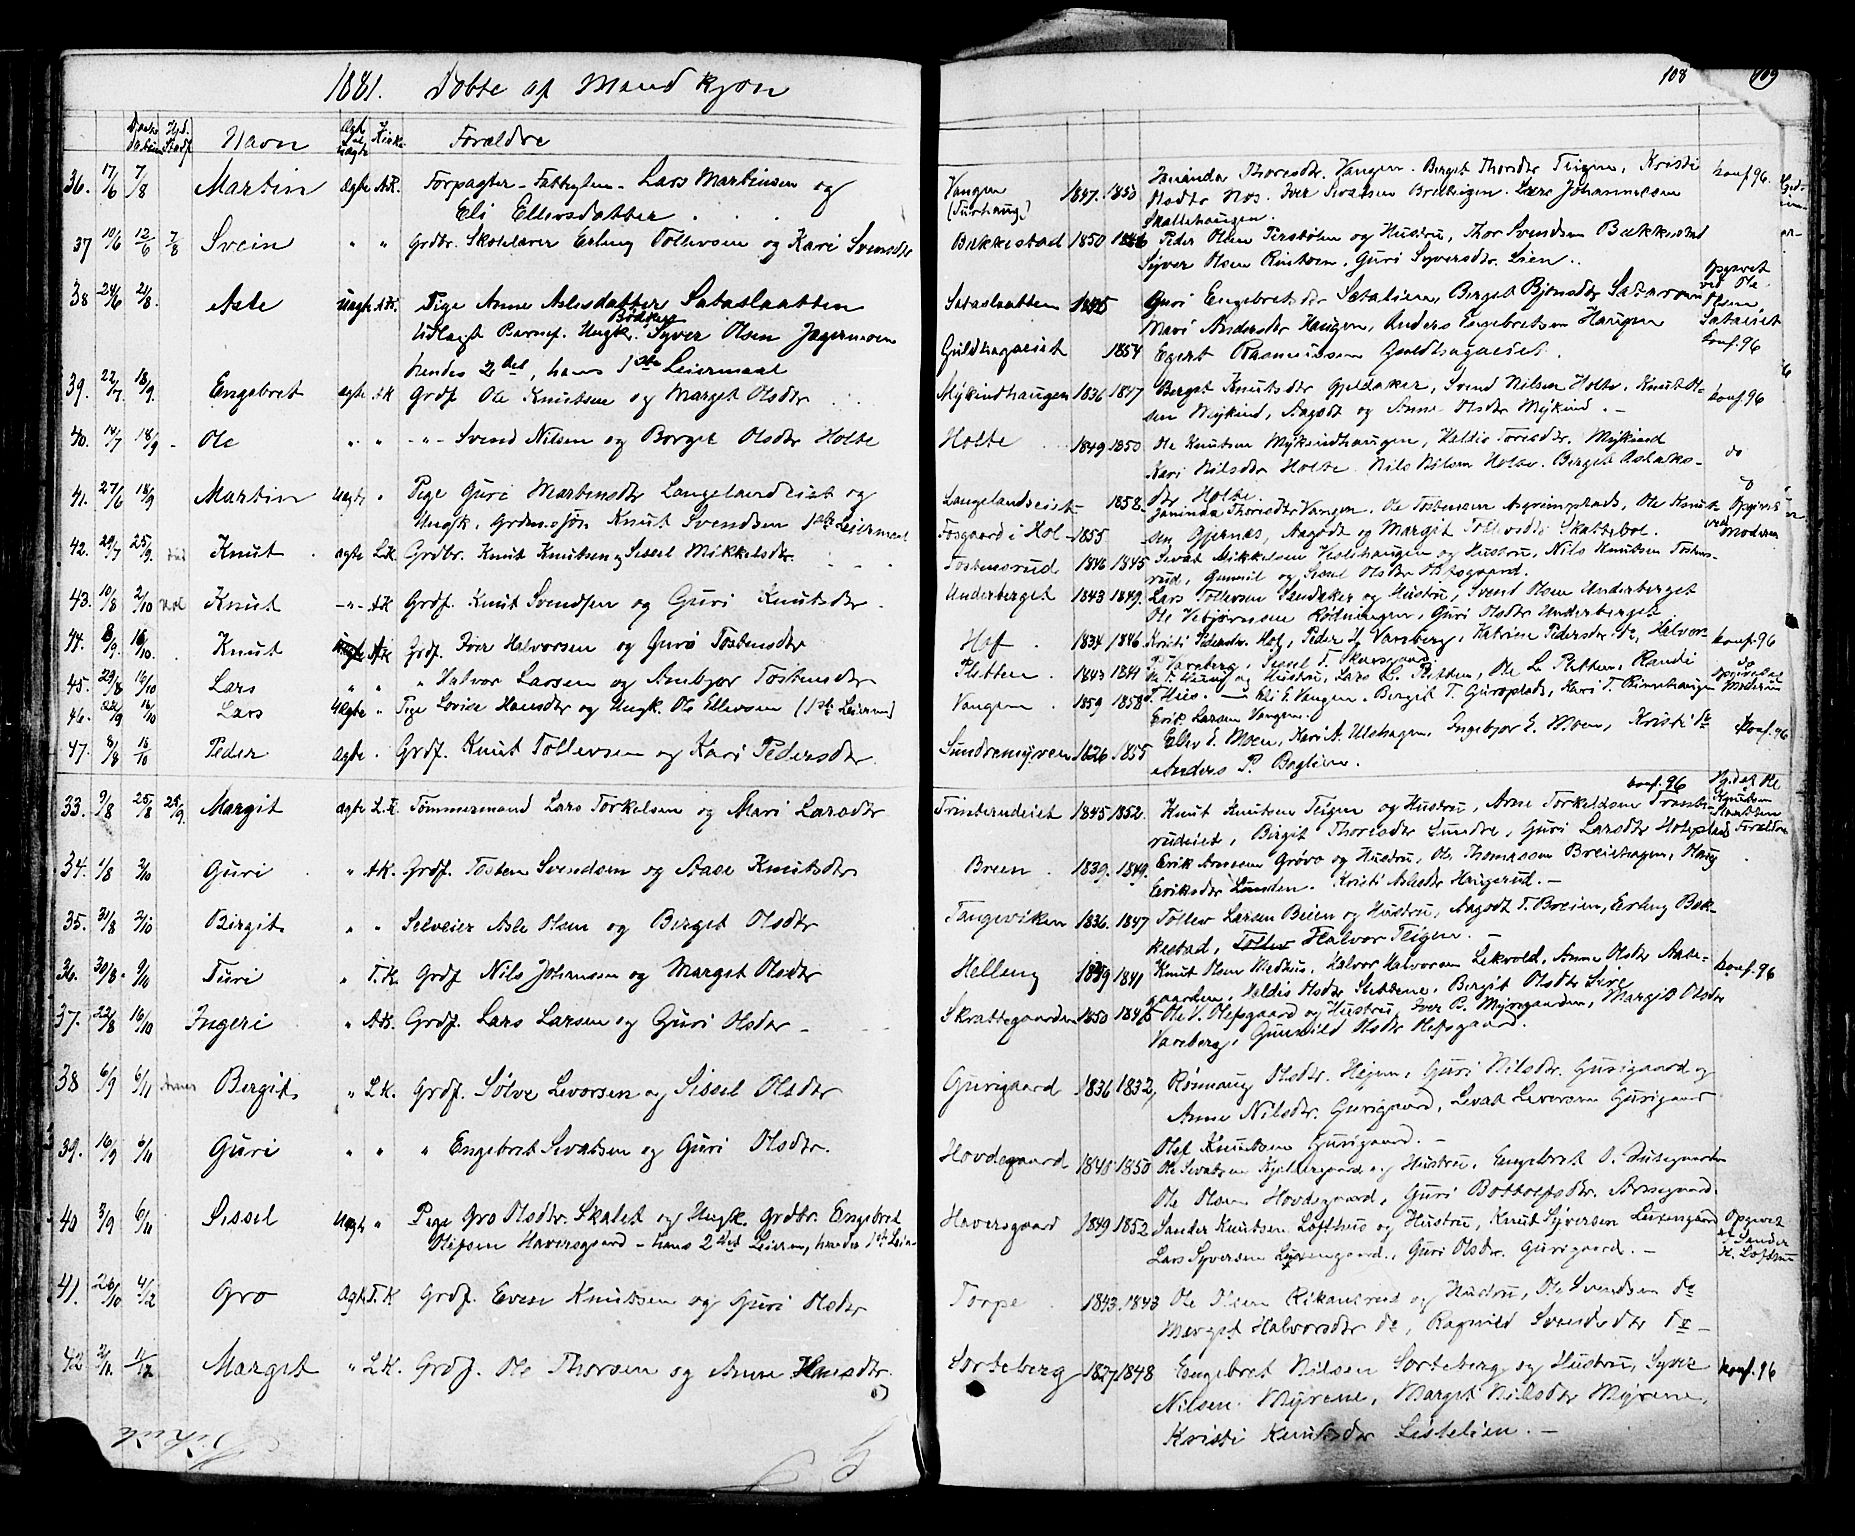 1881. Døbte af Mandkjøn
108 109
Navn Kirke Forældre
36. 17/6 7/8 Martin Ægte A.K. Forpagter - Lars Martinsen og
Eli Ellevsdatter
Vangen 1847. 1850 Thoresdr. Vangen. Berget Thorsdr Teigen, Kristi
Olsdtr Nos. Iver Sivatsen Breihagen. Lars Johannessen
Skallehaugen.
konf 96.
37 10/6 12/6 7/8 Svein " " Grdbr. Skolelærer Erling Tollevsen og Kari Svensdtr
Bækkestad 1850 Peder Olsen og Hustru, Thor Svendsen Bækkestad
Syver Olsen Guri Syversdtr. Lien.
38 24/6 21/8. Asle Uægte A.K. Pige Anne Aslesdatter Sataslaatten
Udlagt Barnef. Ungk. Syver Olsen
hendes 2den, hans 1ste Leiermaal
Sataslaatten 1845 Guri Engebretsdtr Satalien, Berget Bjønsdtr
Mari Andersdtr Haugen, Anders Engebretsen Haugen
Guldhagaeiet 1854 Egert Rasmussen Guldhagaeiet.
Opgivet
ved Ole
Olsen
Sataeiet
konf. 96
39. 22/7. 18/9. Engebret Ægte AK Grdf Ole Knutsen og Marget Olsdtr
Mykindhaugen 1836 1847 Berget Knutsdtr Gjeldaker, Svend Nilsen Holte, Knut Ol-
sen Mykind, Aagodt og Anne Olsdtr Mykind. -
konf 96
40. 14/7 18/9 Ole " " -"- Svend Nilsen og Berget Olsdtr Holte
Holte 1849 1850 Ole Knutsen Mykindhaugen, Haldis Toresdtr. Mykind
Kari Nilsdtr Holte. Nils Nilsen Holte. Berget Aslaks-
dtr Holte.
do
41. 27/6 18/9 Martin Uægte " Pige Guri Martinsdtr Langelandseiet og
Ungk. Grdmssøn Knut Svendsen 1ste Leiermaal
Langelandseiet 1858. Janinda Thorisdtr Vangen. Ole Tostensen Asgrimsplads, Ole Knut-
Fosgaard i Hol 1855 sen Gjernæs, Aagodt og Margit Tollevsdtr Skattebøl.
Opgivet
ved
Moderen
42. 29/7 25/9. Knut Ægte L.K. Grdbr. Knut Knutsen og Sissel Mikkelsdtr.
Tostensrud 1846 1845 Sivat Mikkelsen Halihaugen og Hustru, Nils Knutsen Tostens-
rud, Gunnil og Sissel Olsdtr Olefsgaard.
43. 10/8 2/10 Hol Knut -"- A.K Grdf. Knut Svendsen og Guri Knutsdtr.
Underberget 1843 1849. Lars Tollevsen Sandaker og Hustru, Svend Olsen Underberget
Ole Vebjørnsen Guri Olsdtr Underberget.
44. 8/9. 16/10. Knut A.K Grdf. Iver Halvorsen og Guro Tostensdtr
Hof 1834 1846 Kristi Pedersdtr. Hof, Peder H. Vareberg, Katrine Pedersdtr. do, Halvor
P. Vareberg, Sissel T. Skarsgaard.
konf 96
45. 29/8 16/10 Lars " " " Halvor Larsen og Ambjør Tostensdtr
Pletten 1843 1841 og Hustru, Lars L. Pletten, Ole L. Pletten, Randi
do
46. 22/9 16/10 Lars Uægte " Pige Lovise Hansdtr og Ungk. Ole Ellevsen (1ste Leierm.)
Vangen 1859 1858 Eli E. Vangen. Bergit T. Guroplads, Kari T. Rimehaugen
Erik Larsen Vangen.
Opgivet af
Moderen
47. 8/8 16/10 Peder Ægte . Grdf. Knut Tollevsen og Kari Pedersdtr.
Sundremyren 1826 1855 Ellev E. Moen, Kari A. Ulshagen, Ingebjør E. Moen, Kristi do
Anders P. Baglien.
konf. 96
33. 9/8 25/8 25/9. Margit Ægte L.K. Tømmermand Lars Torkelsen og Mari Larsdtr
Trinterudeiet 1845 1852. Knut Knutsen Teigen og Hustru, Arne Torkeldsen Trinte-
rudeiet, Birgit Thoresdtr Sundre, Guri Larsdtr Holeplads
konf. 96
34. 1/8 2/10 Guri " A.K. Grdf. Tosten Svendsen og Aase Knutsdtr
Breen 1839. 1849. Erik Arnesen Grøvo og Hustru, Ole Thomassen Breiehagen, Haug
Eriksdtr Lunden. Kristi Aslesdtr Haugerud. -
35. 31/8 2/10 Birgit " " Selveier Asle Olsen og Berget Olsdtr
Tangeviken 1836. 1847 Tollev Larsen Breien og Hustru, Aagodt T. Breien, Erling Bæk-
kestad, Halvor Teigen. -
36. 30/8. 9/10 Turi " T.K. Grdf Nils Johnsen og Marget Olsdtr
Helling 1839 1841 Knut Olsen Medhus, Halvor Halvorsen Lekvold, Anne Olsdtr Aale-
gaarden, Haldis Olsdtr Slettene, Bergit Olsdtr Lire
konf. 96
37. 22/8 16/10 Ingeri " A.K. Grdf. Lars Larsen og Guri Olsdtr -
Skrattegaarden 1850 1845 Ole V. Olefsgaard og Hustru, Iver B. Myregaarden, Margit Olsdtr
Vareberg, Gunhild Olsdtr Olefsgaard.
38 6/9 6/11 Bergit " L.K. Grdf. Sølve Levorsen og Sissel Olsdtr
Gurigaard 1836 1832, Rønnaug Olsdtr. Hejen, Guri Nilsdtr. Gurigaard og
Anne Nilsdtr. Gurigaard, Levat Levorsen Gurigaard
Olef Knutsen Gurigaard. -
39. 16/9 6/11 Guri " " " Engebret Sevatsen og Guri Olsdtr.
Hovdegaard 1845 1850 Ole Sevatsen og Hustru, Engebret O.
Ole Olsen Hovdegaard, Guri Bottolfsdtr. Arnegaard.
40 3/9 6/11 Sissel Uægte " Pige Gro Olsdtr. Skalet og Ungk. Grdbr. Engebret
Olefsen Haversgaard - hans 2det Leierm, hendes 1ste Leier
Haversgaard 1849 1852 Sander Knutsen Lofthus og Hustru, Knut Syversen Luxengaard
Lars Syversen Luxengaard, Guri Olsdr. Gurigaard. -
Opgivet
af Sander
K. Lofthus
41. 26/10 4/12 Gro Ægte T.K Grdf. Even Knutsen og Guri Olsdtr
Torpe 1843. 1843 Ole Olsen Rikansrud og Hustru, Ole Svendsen do
Merget Halvorsdtr do, Ragnild Svendsdtr do -
42 2/11. 11/12 Marget " L.K. Grdf. Ole Thorsen og Anne Hansdtr.
Sorteberg 1827 1848 Engebret Nilsen Sorteberg og Hustru, Syver
Nilsen Myrene, Marget Nilsdtr Myrene,
Kristi Knutsdtr Listelien. -
konf. 96